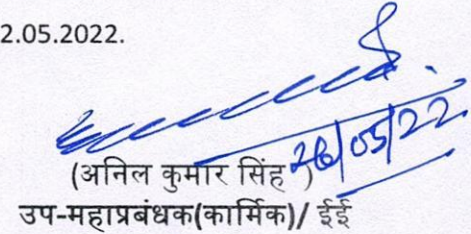 2.05.2022.
26/05/22
(अनिल कुमार सिंह )
उप-महाप्रबंधक(कार्मिक)/ ईई